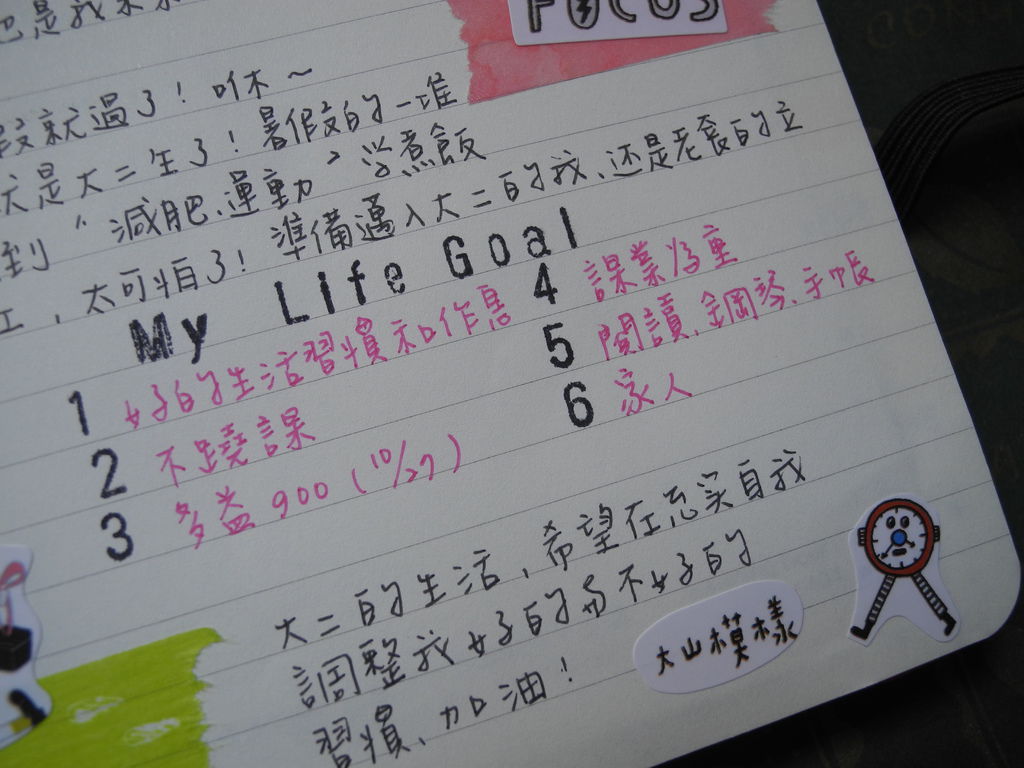 FOCUS
就過了！咻～
是大二生了！暑假的一堆
到“減肥、運動”學煮飯
，太可怕了！準備邁入大二的我、還是老套的立
My Life Goal
1 好的生活習慣和作息
2 不蹺課
3 多益 900 (10/27)
4 課業為重
5 閱讀、鋼琴、手帳
6 家人
大二的生活，希望在忠實自我
調整我好的與不好的
習慣、加油！
大山模樣